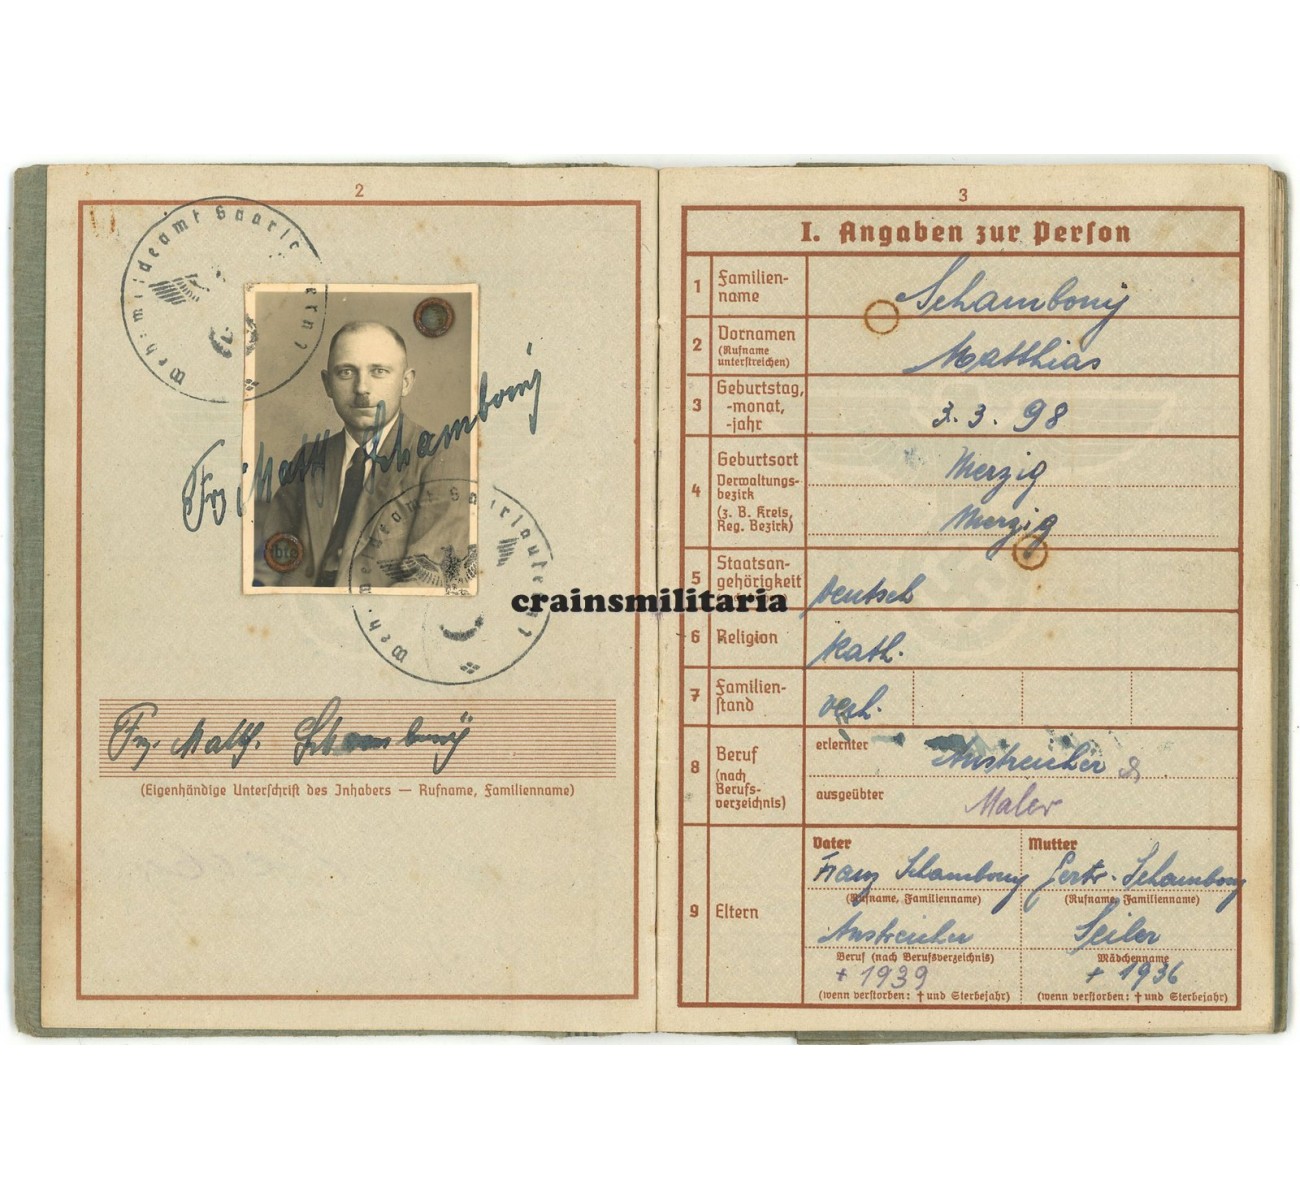 2
Wehrmeldeamt Saarlautern 1
Frz. Matth. Schambony
Wehrmeldeamt Saarlautern 1
crainsmilitaria
Frz. Matth. Schambony
(Eigenhändige Unterschrift des Inhabers — Rufname, Familienname)
3
I. Angaben zur Person
1 Familien-
name
Schambony
2 Vornamen
(Rufname
unterstreichen)
Matthias
3 Geburtstag,
-monat,
-jahr
3. 3. 98
4 Geburtsort
Verwaltungs-
bezirk
(z. B. Kreis,
Reg. Bezirk)
Merzig
Merzig
5 Staatsan-
gehörigkeit
deutsch
6 Religion
kath.
7 Familien-
stand
verh.
8 Beruf
(nach
Berufs-
verzeichnis)
erlernter
Anstreicher &
ausgeübter
Maler
9 Eltern
Vater
Mutter
Franz Schambony
Gertr. Schambony
(Rufname, Familienname)
(Rufname, Familienname)
Anstreicher
Seiler
Beruf (nach Berufsverzeichnis)
Mädchenname
+ 1939
+ 1936
(wenn verstorben: † und Sterbejahr)
(wenn verstorben: † und Sterbejahr)